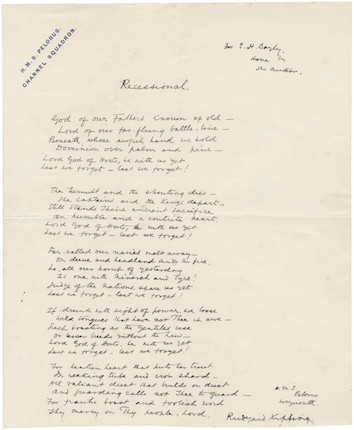 H.M.S. PELORUS,
CHANNEL SQUADRON.
For E. H. Bayly.
from
the Author.
Recessional.
God of our Fathers known of old —
Lord of our far-flung battle-line —
Beneath whose awful hand we hold
Dominion over palm and pine —
Lord God of Hosts, be with us yet
Lest we forget — lest we forget!
The tumult and the shouting dies —
The Captains and the Kings depart —
Still Stands Thine ancient Sacrifice
An humble and a contrite heart.
Lord God of Hosts, be with us yet
Lest we forget — lest we forget!
Far called our navies melt away —
On dune and headland sinks the fire.
Lo, all our pomp of yesterday
Is one with Nineveh and Tyre!
Judge of the Nations, spare us yet
Lest we forget — lest we forget!
If drunk with sight of power, we loose
Wild tongues that have not Thee in awe —
Such boasting as the Gentiles use
Or lesser breeds without the Law —
Lord God of Hosts, be with us yet
Lest we forget — lest we forget!
For heathen heart that puts her trust
In reeking tube and iron shard —
All valiant dust that builds on dust
And guarding calls not Thee to guard —
For frantic boast and foolish word
Thy mercy on Thy people, Lord.
H.M.S.
Pelorus
Weymouth.
Rudyard Kipling